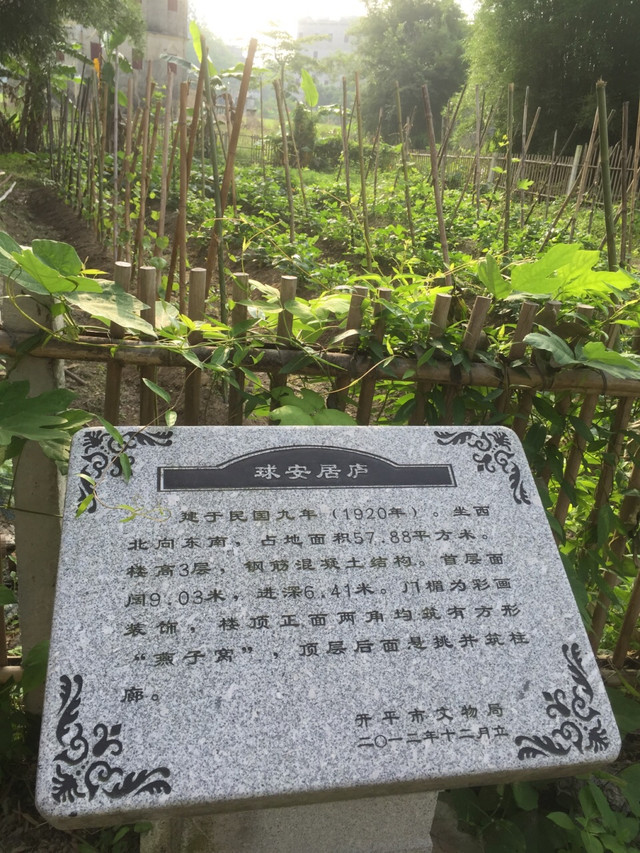 球安居庐
建于民国九年（1920年）。坐西
北向东南，占地面积57.88平方米。
楼高3层，钢筋混凝土结构。首层面
阔9.03米，进深6.41米。门楣为彩画
装饰，楼顶正面两角均筑有方形
“燕子窝”，顶层后面悬挑并筑柱
廊。
开平市文物局
二〇一二年十二月立